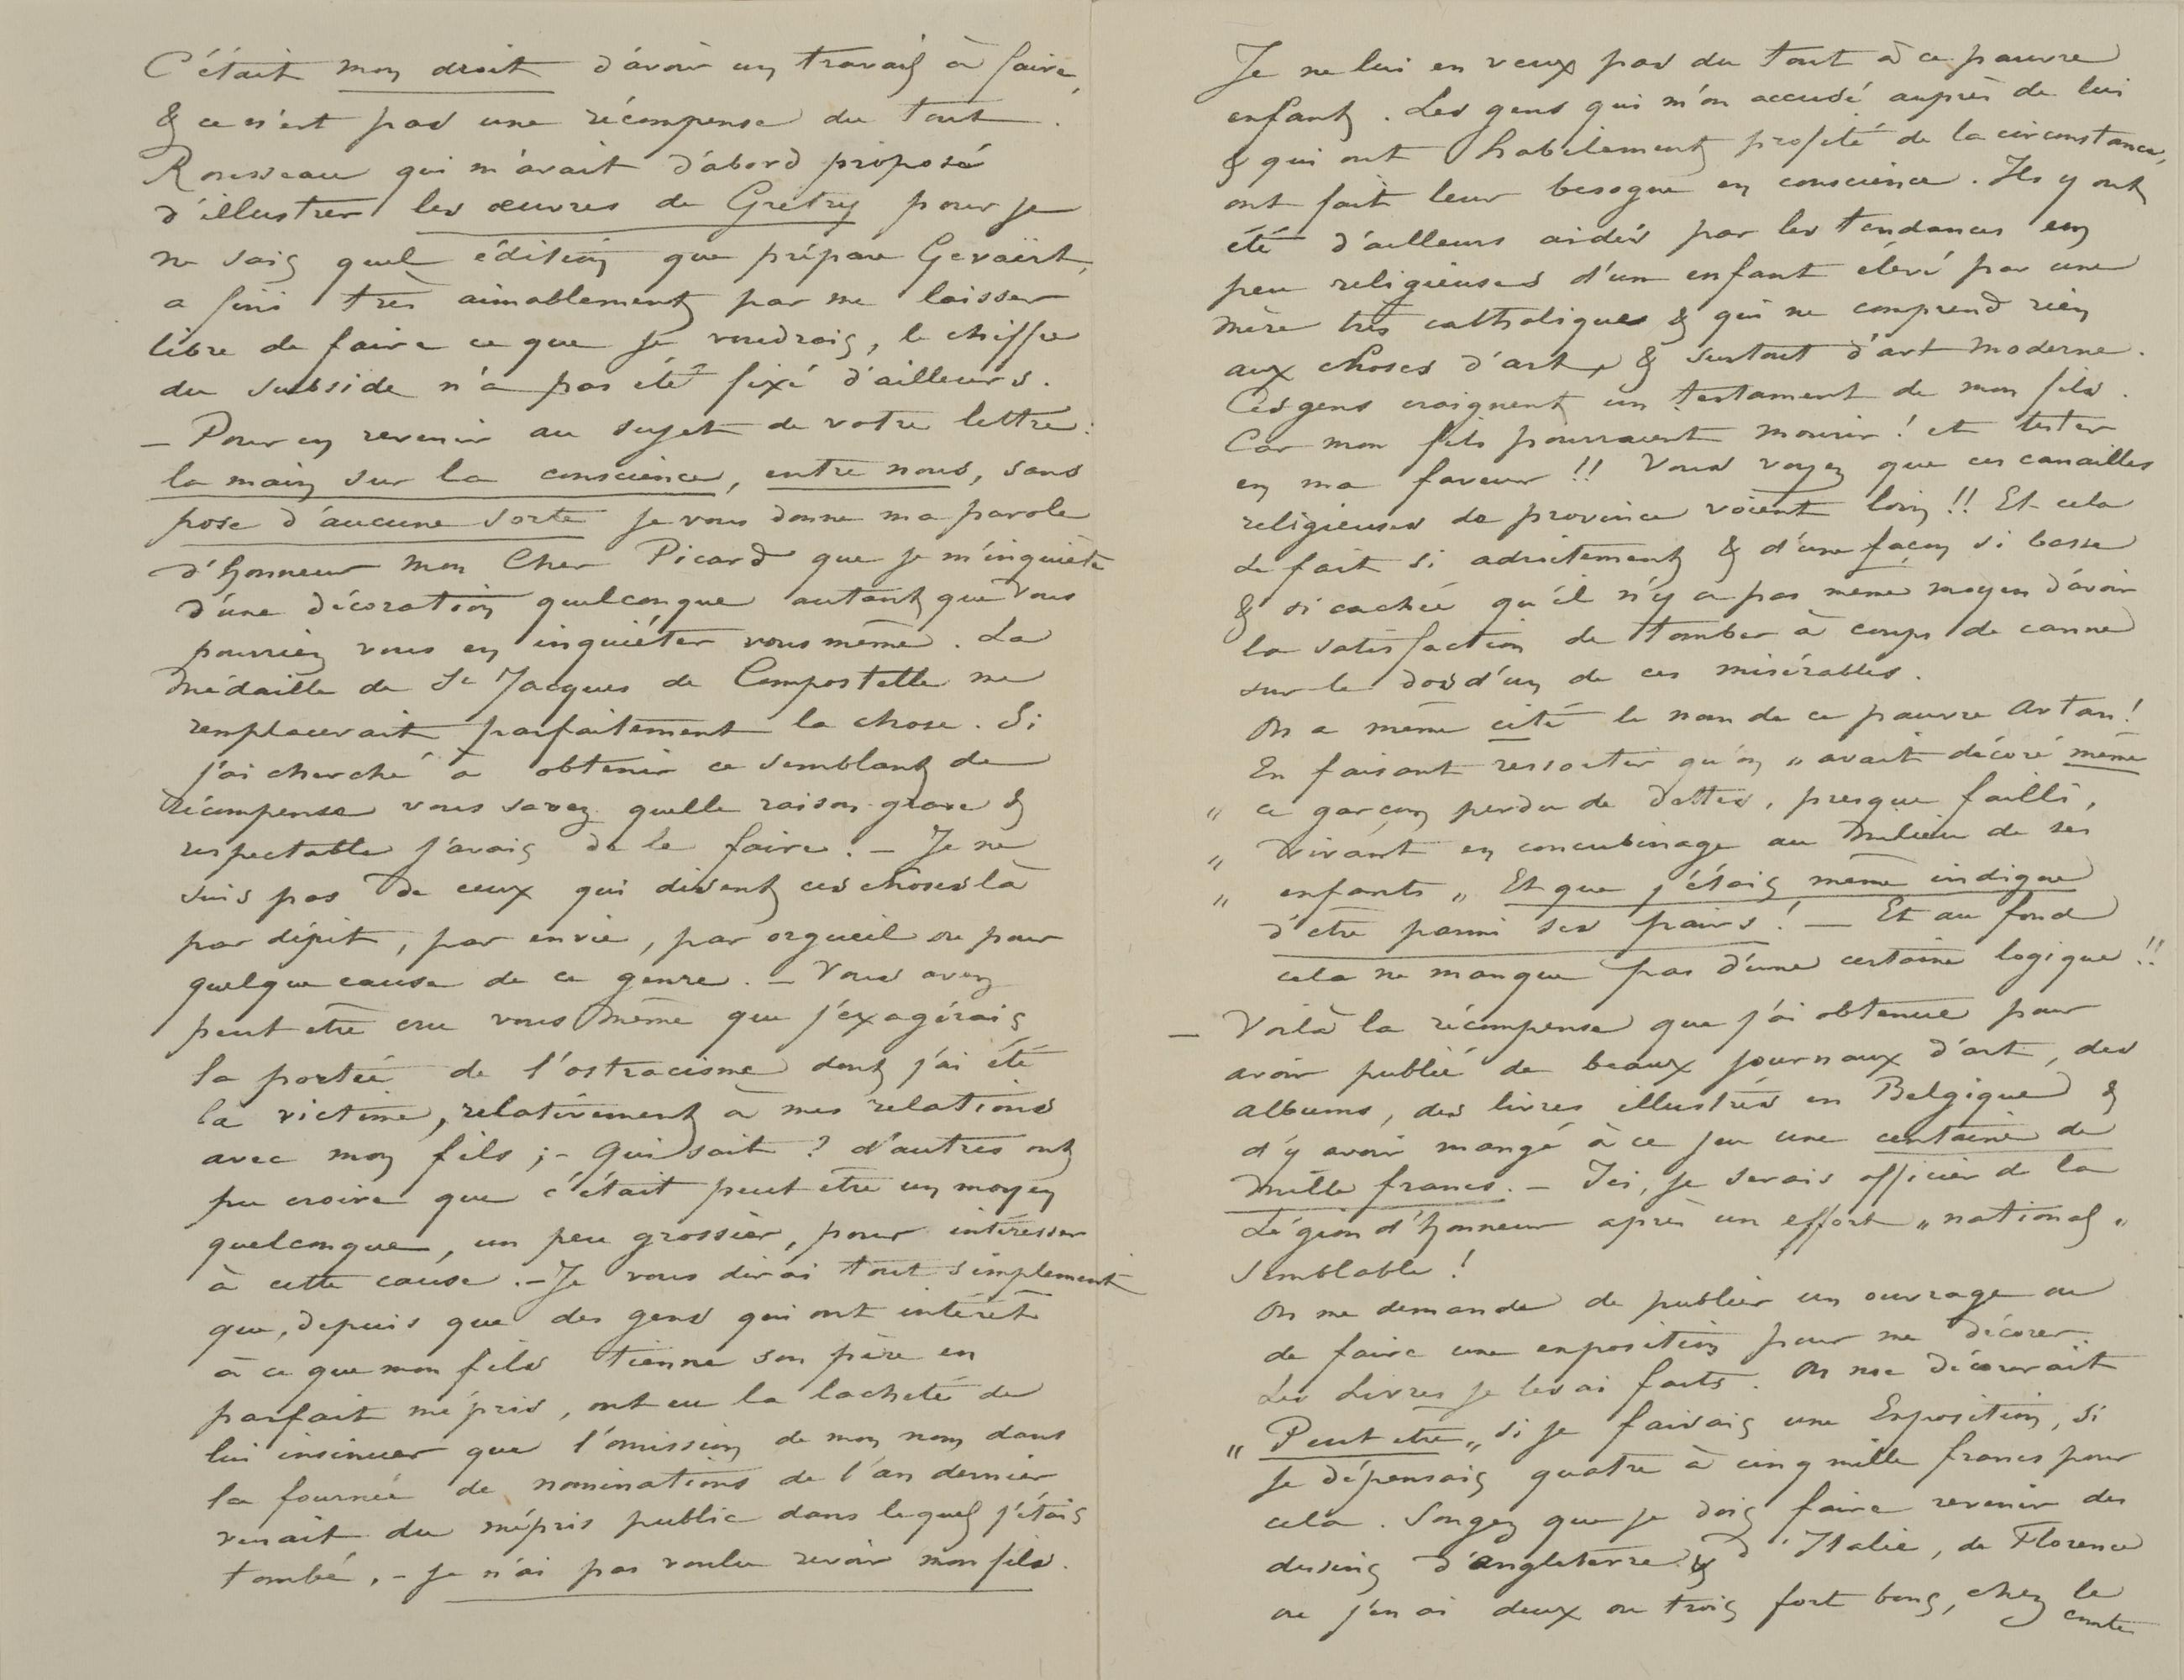 C'était mon droit d'avoir un travail à faire,
& ce n'est pas une récompense du tout.
Rousseau qui m'avait d'abord proposé
d'illustrer les œuvres de Grétry pour je
ne sais quel édition que prépare Gevaërt,
a fini très aimablement par me laisser
libre de faire ce que je voudrais, le chiffre
du subside n'a pas été fixé d'ailleurs.
– Pour en revenir au sujet de votre lettre:
la main sur la conscience, entre nous, sans
pose d'aucune sorte je vous donne ma parole
d'honneur mon Cher Picard que je m'inquiète
d'une décoration quelconque autant que vous
pourriez vous en inquiéter vous même. La
médaille de St Jacques de Compostelle me
remplacerait parfaitement la chose. Si
j'ai cherché à obtenir ce semblant de
récompense vous savez quelle raison grave &
respectable j'avais de le faire. – Je ne
suis pas de ceux qui disent ces choses là
par dépit, par envie, par orgueil ou pour
quelque cause de ce genre. – Vous avez
peut etre cru vous même que j'éxagérais
la portée de l'ostracisme dont j'ai été
la victime, relativement à mes relations
avec mon fils ; – Qui sait ? d'autres ont
pu croire que c'était peut etre un moyen
quelconque, un peu grossier, pour intéresser
à cette cause. – Je vous dirai tout simplement
que, depuis que des gens qui ont intérêt
à ce que mon fils tienne son père en
parfait mépris, ont eu la lacheté de
lui insinuer que l'omission de mon nom dans
la fournée de nominations de l'an dernier
venait du mépris public dans lequel j'étais
tombé, – je n'ai pas voulu revoir mon fils.
Je ne lui en veux pas du tout à ce pauvre
enfant. Les gens qui m'on accusé auprès de lui
& qui ont habilement profité de la circonstance,
ont fait leur besogne en conscience. Ils y ont
été d'ailleurs aidés par les tendances un
peu religieuses d'un enfant élevé par une
mère très catholique & qui ne comprend rien
aux choses d'art, & surtout d'art moderne.
Ces gens craignent un testament de mon fils.
Car mon fils pourraient mourir ! et tester
en ma faveur !! Vous voyez que ces canailles
religieuses de province voient loin !! Et cela
se fait si adroitement & d'une façon si basse
& si cachée qu'il n'y a pas même moyen d'avoir
la satisfaction de tomber à coups de canne
sur le dos d'un de ces misérables.
On a même cité le nom de ce pauvre Artan !
En faisant ressortir qu'on „ avait décoré même
„ ce garçon perdu de dettes, presque failli,
„ vivant en concubinage au milieu de ses
„ enfants „ Et que j'étais même indigne
d'etre parmi ses pairs ! — Et au fond
cela ne manque pas d'une certaine logique !!
– Voilà la récompense que j'ai obtenue pour
avoir publié de beaux journaux d'art, des
albums, des livres illustrés en Belgique &
d'y avoir mangé à ce jeu une centaine de
mille francs. – Ici, je serais officier de la
Légion d'honneur après un effort „ national „
semblable !
On me demande de publier un ouvrage ou
de faire une exposition pour me décorer.
Les Livres je les ai faits. On me décorerait
„ Peut etre „ si je faisais une Exposition, si
je dépensais quatre à cinq mille francs pour
cela. Songez que je dois faire revenir des
dessins d'Angleterre & d'Italie, de Florence
ou j'en ai deux ou trois fort bons, chez le
comte